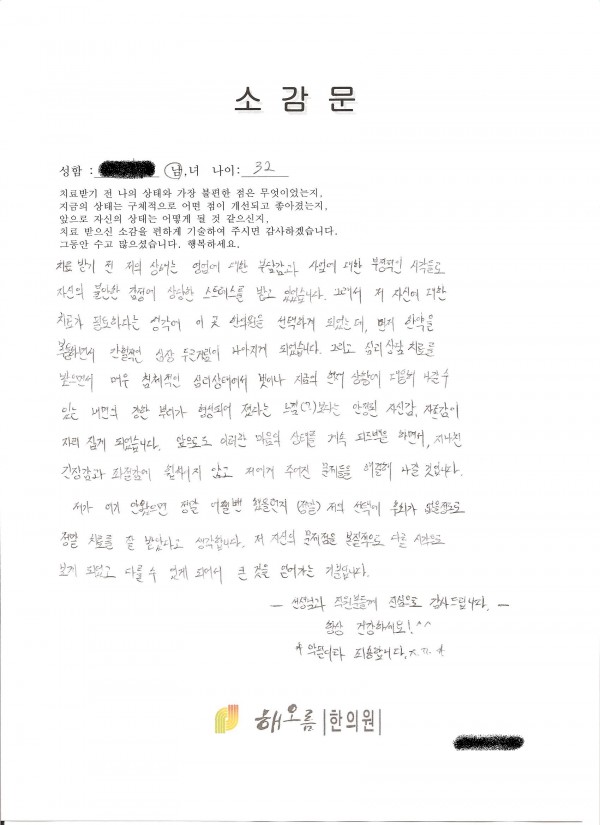 소 감 문
성함 : 남,녀 나이: 32
치료받기 전 나의 상태와 가장 불편한 점은 무엇이었는지,
지금의 상태는 구체적으로 어떤 점이 개선되고 좋아졌는지,
앞으로 자신의 상태는 어떻게 될 것 같으신지,
치료 받으신 소감을 편하게 기술하여 주시면 감사하겠습니다.
그동안 수고 많으셨습니다. 행복하세요.
치료 받기 전 저의 상태는 영업에 대한 부담감과 사업에 대한 부정적인 시각들로
자신의 불안한 감정에 상당한 스트레스를 받고 있었습니다. 그래서 저 자신에 대한
치료가 필요하다는 생각에 이 곳 한의원을 선택하게 되었는데, 먼저 한약을
복용하면서 간헐적인 심장 두근거림이 나아지게 되었습니다. 그리고 심리상담 치료를
받으면서 매우 침체적인 심리상태에서 벗어나 지금의 현재 상황에 대응해 나갈 수
있는 내면의 강한 부터가 형성되어 졌다는 느낌(?)보다는 안정된 자신감, 자존감이
자리 잡게 되었습니다. 앞으로도 이러한 마음의 상태를 계속 피드백을 하면서, 지나친
긴장감과 좌절감에 휩싸이지 않고 저에게 주어진 문제들을 해결해 나갈 것입니다.
제가 여기 안왔으면 정말 어쩔뻔 했을런지 (정말) 저의 선택에 후회가 없을정도로
정말 치료를 잘 받았다고 생각합니다. 저 자신의 문제점을 본질적으로 다른 시각으로
보게 되었고 다룰 수 있게 되어서 큰 것을 얻어가는 기분입니다.
- 선생님과 직원분들께 진심으로 감사드립니다. -
항상 건강하세요! ^^
해오름 |한의원|